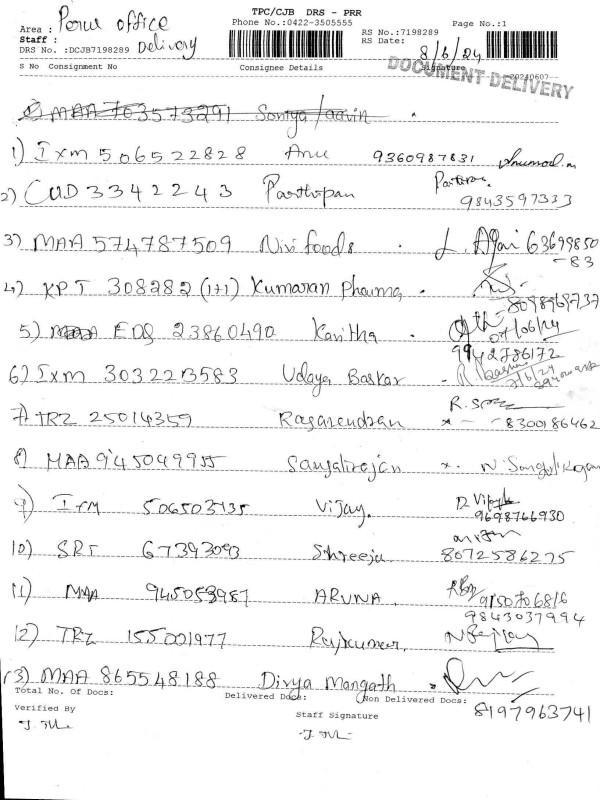 TPC/CJB DRS - PRR
Phone No.:0422-3505555
Page No.:1
Area : Perur office
Staff :
DRS No. :DCJB7198289 Delivery
RS No.:7198289
RS Date:
8/6/24
S No Consignment No Consignee Details Signature
20240607
DOCUMENT DELIVERY
MAA 703573291 Soniya/aavin
1) Ixm 506522828 Anu 9360987831
2) CUD 3342243 Parthipan 9843597333
3) MAA 574787509 Nivi foods . L. Ajai 63699850
-83
4) KPT 308282 (1+1) Kumaran Pharma, - 8098968737
5) EDQ 23860490 Kavitha 07/06/24
9942786172
6) Ixm 3032213583 Udaya Baskar
7) TRZ 25014359 Rajarendran - 8300186462
8) MAA 945049955 Sangalirajan
9) Ixm 506503435 Vijay. D. Vijay
9698766930
10) SRT 67393093 Shreeja 8072586275
11) MAA 945053987 ARUNA. 9150706816
9843037994
12) TRZ 155001977 Rajkumar,
13) MAA 865548188 Divya Mangath
Total No. Of Docs: Delivered Docs: Non Delivered Docs:
8197963741
Verified By Staff Signature